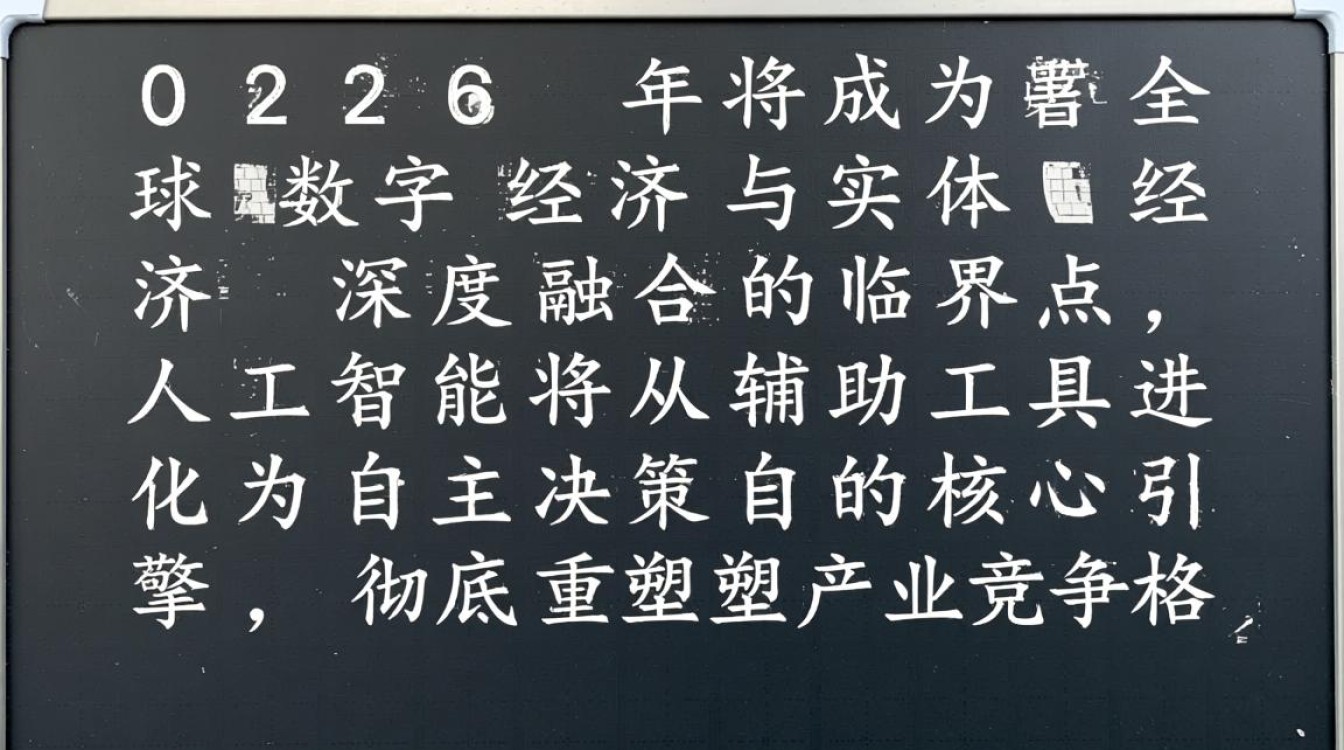 0226 年将成为 全
球 数字 经济与实体 经
济 深度融合的临界点，
人工智能将从辅助工具进
化为自主决策自的核心引
擎，彻底重塑塑产业竞争格